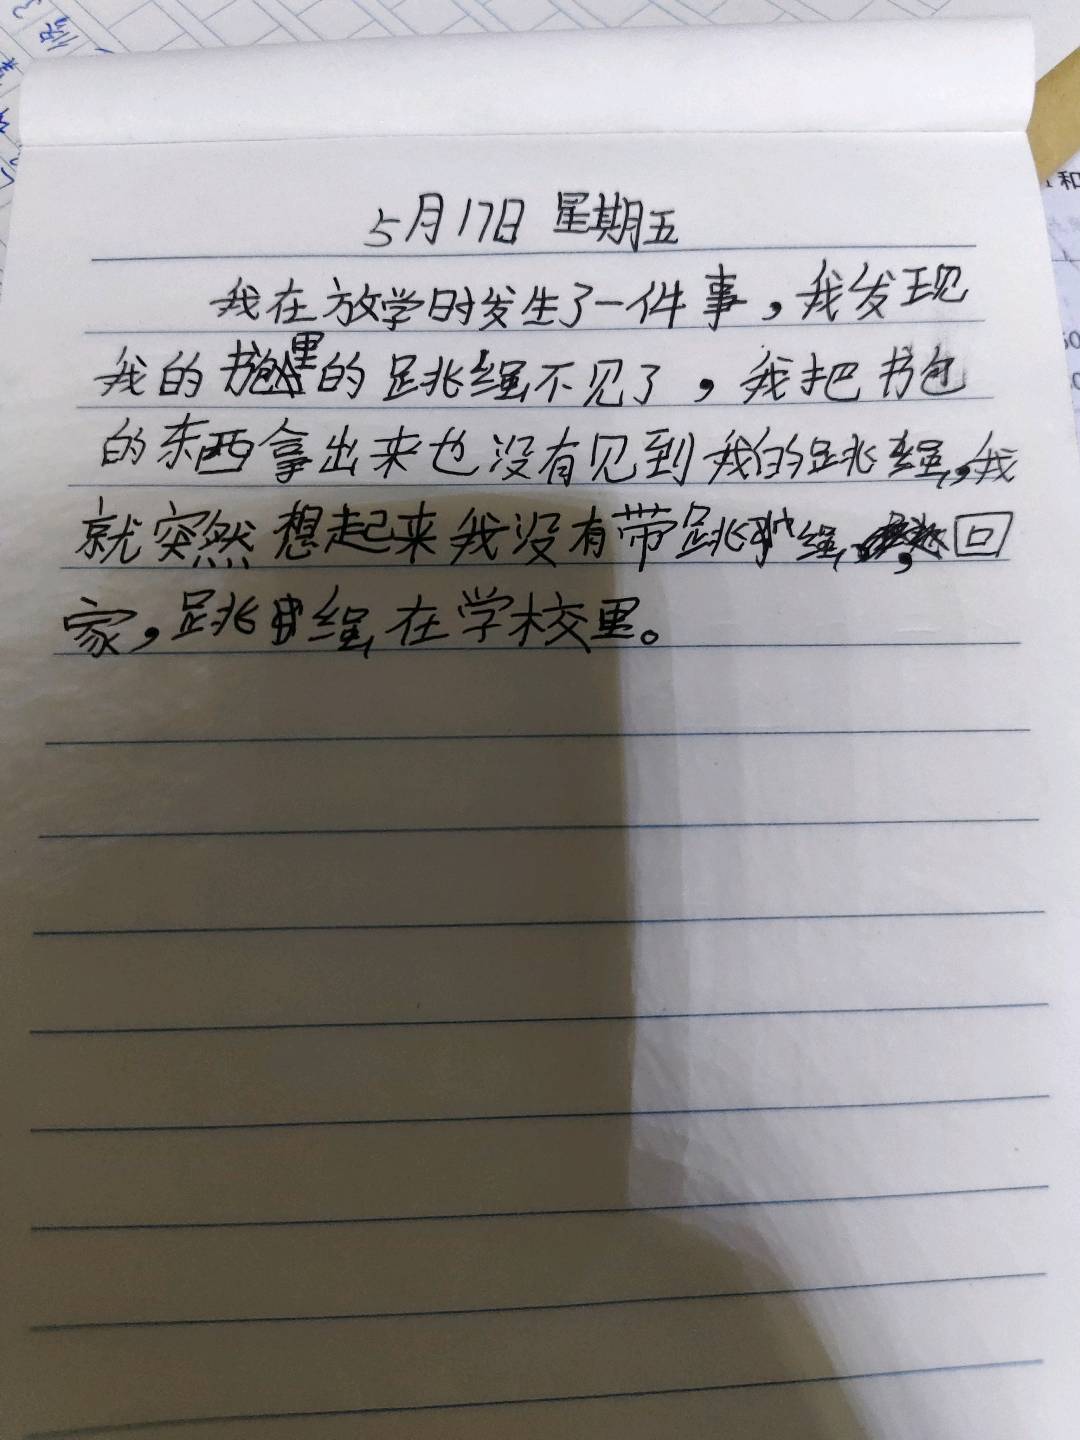 5月17日 星期五
我在放学时发生了一件事，我发现
我的书包里的跳绳不见了，我把书包
的东西拿出来也没有见到我的跳绳，我
就突然想起来我没有带跳绳，回
家，跳绳在学校里。
和